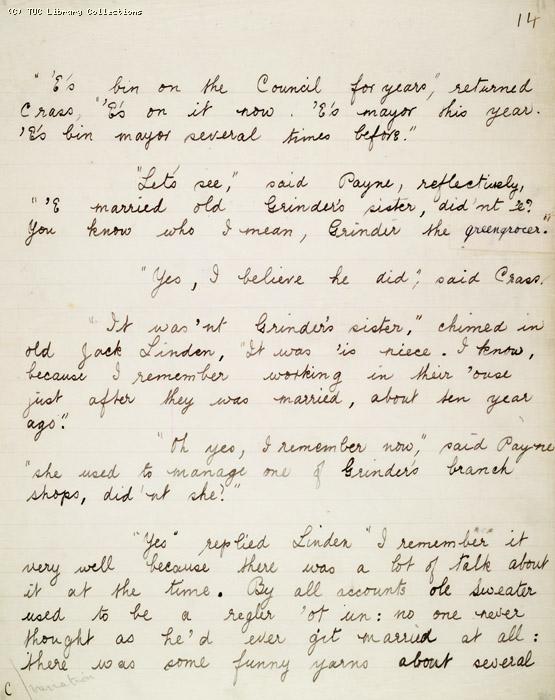 (C) TUC Library Collections
14
" 'E's bin on the Council for years," returned
Crass, "'E's on it now. 'E's mayor this year.
'E's bin mayor several times before."
"Let's see," said Payne, reflectively,
"'E married old Grinder's sister, did'nt 'e?
You know who I mean, Grinder the greengrocer."
"Yes, I believe he did," said Crass.
"It was'nt Grinder's sister," chimed in
old Jack Linden, "It was 'is niece. I know,
because I remember working in their 'ouse
just after they was married, about ten year
ago."
"Oh yes, I remember now," said Payne
"she used to manage one of Grinder's branch
shops, did'nt she?"
"Yes" replied Linden "I remember it
very well because there was a lot of talk about
it at the time. By all accounts ole Sweater
used to be a regler 'ot un: no one never
thought as he'd ever git married at all:
there was some funny yarns about several
C